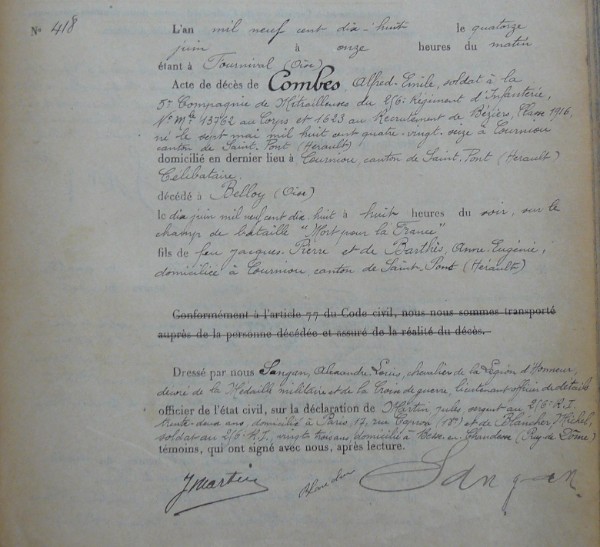 N° 418
L'an mil neuf cent dix-huit le quatorze
juin à onze heures du matin
étant à Fournival (Oise)
Acte de décès de Combes Alfred-Emile, soldat à la
5e Compagnie de Mitrailleuses du 216e Régiment d'Infanterie,
N° Mle 13762 au Corps et 1623 au Recrutement de Béziers, Classe 1916,
né le sept mai mil huit cent quatre-vingt-seize à Courniou
canton de Saint-Pont (Hérault)
domicilié en dernier lieu à Courniou, canton de Saint-Pont (Hérault)
Célibataire.
décédé à Belloy (Oise)
le dix juin mil neuf cent dix-huit à huit heures du soir, sur le
champ de bataille "Mort pour la France"
fils de feu Jacques-Pierre et de Barthès, Anne-Eugénie,
domiciliée à Courniou, canton de Saint-Pons (Hérault)
Conformément à l'article 77 du Code civil, nous nous sommes transporté
auprès de la personne décédée et assuré de la réalité du décès.
Dressé par nous Sangan, Alexandre-Louis, chevalier de la Légion d'Honneur,
décoré de la Médaille militaire et de la Croix de guerre, lieutenant officier de détails
officier de l'état civil, sur la déclaration de Martin, Jules sergent au 216e R.I.
trente-deux ans, domicilié à Paris 17, rue (18e) et de Blancher, Michel,
soldat au 216e R.I., vingt-trois ans, domicilié à Besse-en-Chandesse (Puy de Dôme)
témoins, qui ont signé avec nous, après lecture.
J Martin Blancher Sangan